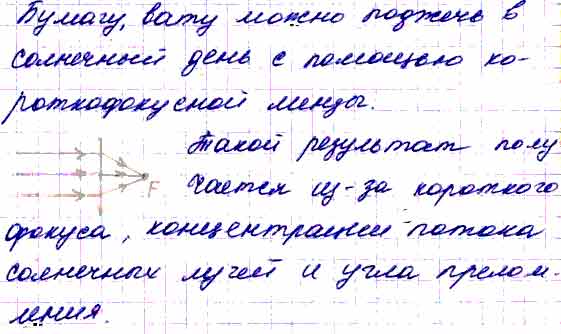 Бумагу, вату можно поджечь в
солнечный день с помощью ко-
роткофокусной линзы.
Такой результат полу
F
чается из-за короткого
фокуса, концентрации потока
солнечных лучей и угла прелом-
ления.